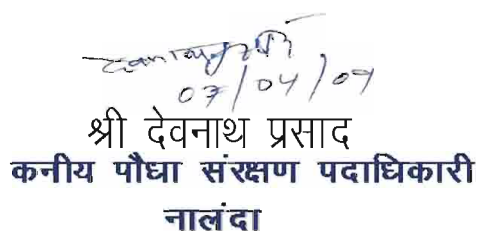 07/04/09
श्री देवनाथ प्रसाद
कनीय पौधा संरक्षण पदाधिकारी
नालंदा